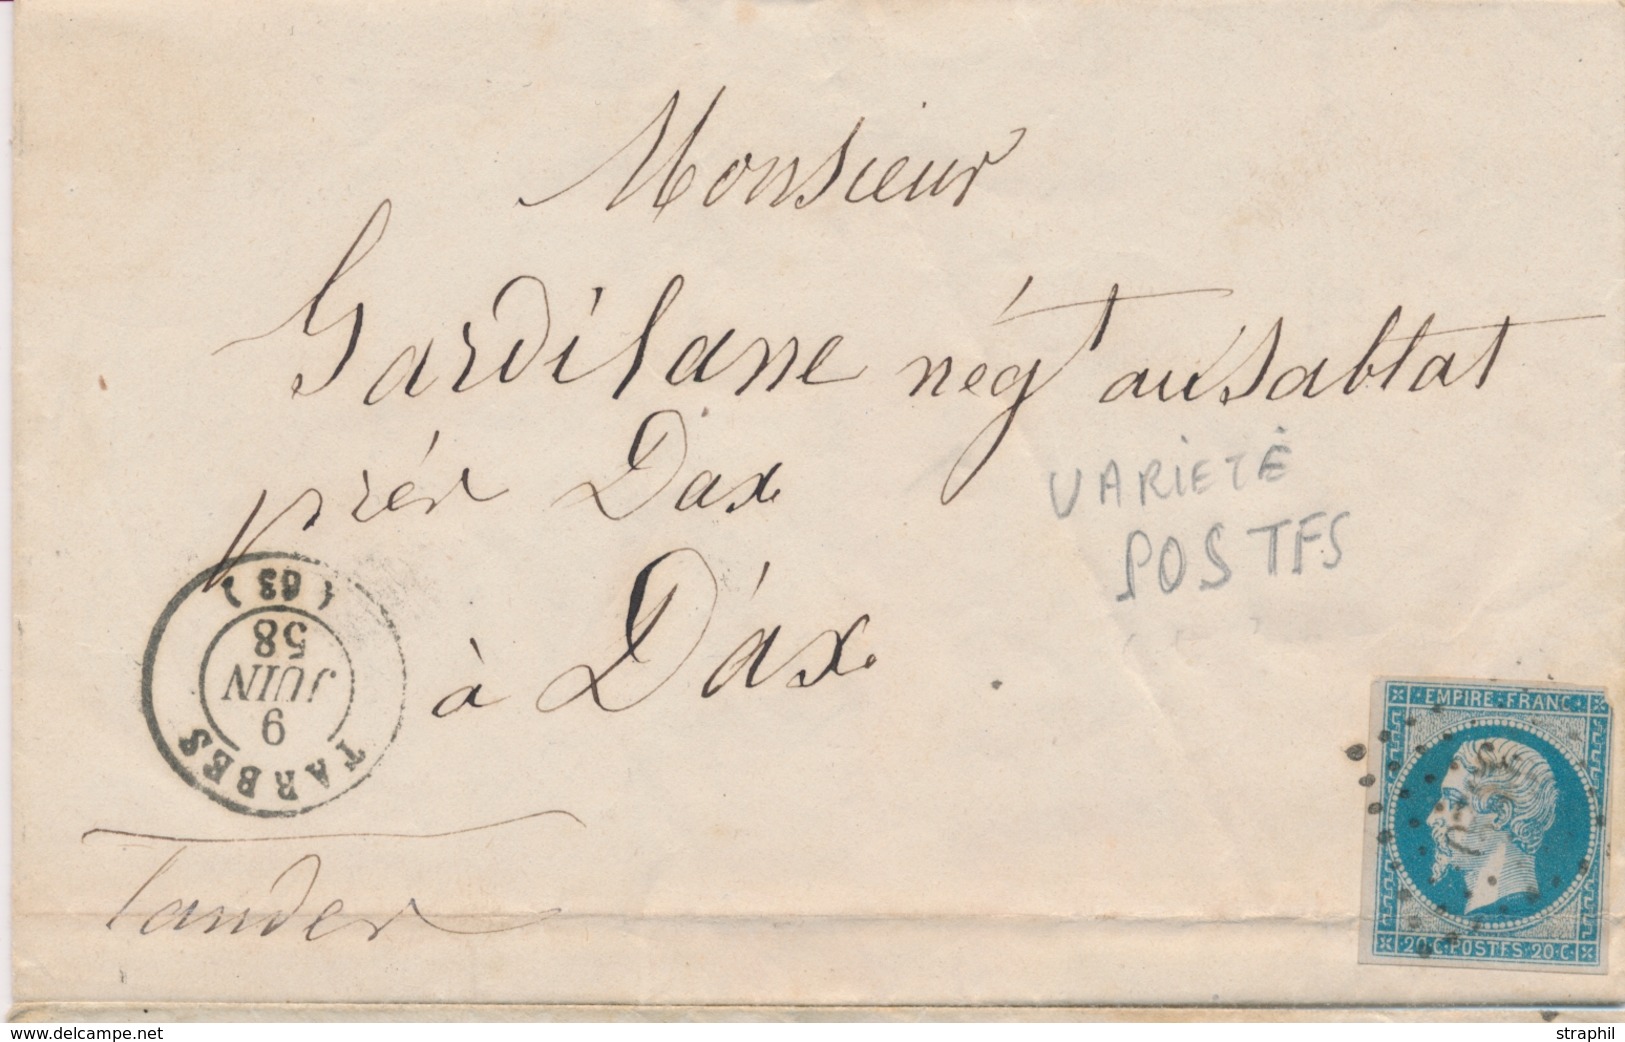 Monsieur
Gardilanne nég^t au Sablat
près Dax
à Dax.
VARIETE
POSTFS
TARBES
9
JUIN
58
(63)
Landes
EMPIRE·FRANC·
20·C·POSTFS·20·C·
www.delcampe.net
straphil